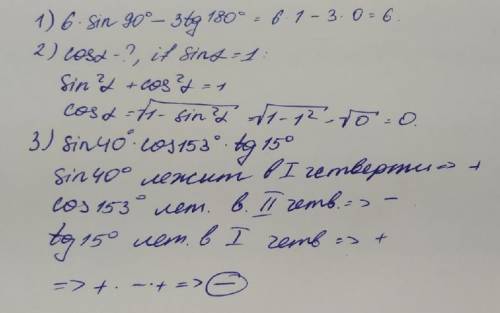 1) 6 · sin 90° − 3tg 180° = 6 · 1 − 3 · 0 = 6.
2) cosα - ?, if sinα = 1:
sin²α + cos²α = 1
cosα = √1 − sin²α = √1 − 1² = √0 = 0.
3) sin40° · cos153° · tg 15°
sin40° лежит в I четверти => +
cos153° леж. в. II четв. => −
tg15° леж. в I четв => +
=> + · − · + => −